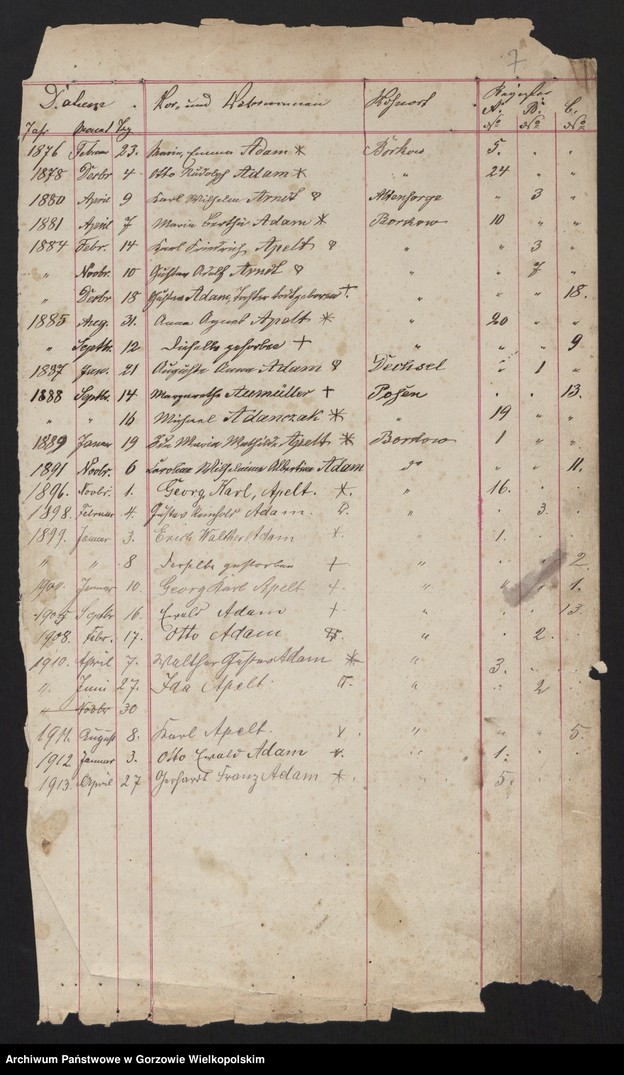 7
Datum. Vor- und Zunamen Wohnort Register
Jahr Monat Tag A. B. C.
No No No
1876 Februar 23. Maria, Emma Adam * Borkow 5. " "
1878 Dezbr 4 Otto Rudolph Adam * " 24 " "
1880 April 9 Karl Wilhelm Arndt Altensorge " 3 "
1881 April 7 Maria Bertha Adam * Borkow 10 " "
1884 Febr. 14 Karl Friedrich Apelt " " 3 "
" Novbr. 10 Gustav Adolf Arndt " " 7 "
" Dezbr 18 Gustav Adam, Tochter todtgeboren †. " " " 18.
1885 Aug. 31. Anna Apelt * " 20 " "
" Septb. 12 Dieselbe gestorben † " " " 9
1887 Jan. 21 Auguste Anna Adam Dechsel " 1 "
1888 Septb. 14 Margarethe Ausmüller † Posen " " 13.
" " 16 Michael Adamczak * " 19 " "
1889 Januar 19 Maria Mathilde Apelt * Borkow 1 " "
1891 Novbr. 6 Caroline Wilhelmine Albertine Adam do " " 11.
1896. Novbr. 1. Georg, Karl, Apelt. *. " 16. . .
1898. Februar 4. Gustav Reinhold Adam. " . 3. .
1899. Januar 3. Erich Walther Adam * . 1. . .
" " 8 Derselbe gestorben † " . . 2.
Januar 10. Georg Karl Apelt † " " . 1.
1905 Septbr 16. Ewald Adam † " . . 13.
1908. Febr. 17. Otto Adam " . 2. .
1910. April 7. Walther Gustav Adam * " 3. . .
". Juni 27. Ida Apelt. " . 2 .
" Novbr 30
1911. August 8. Karl Apelt " " . 5.
1912 Januar 3. Otto Ewald Adam *. " 1. . .
1913. April 27 Gerhardt Franz Adam *. . 5. . .
Archiwum Państwowe w Gorzowie Wielkopolskim